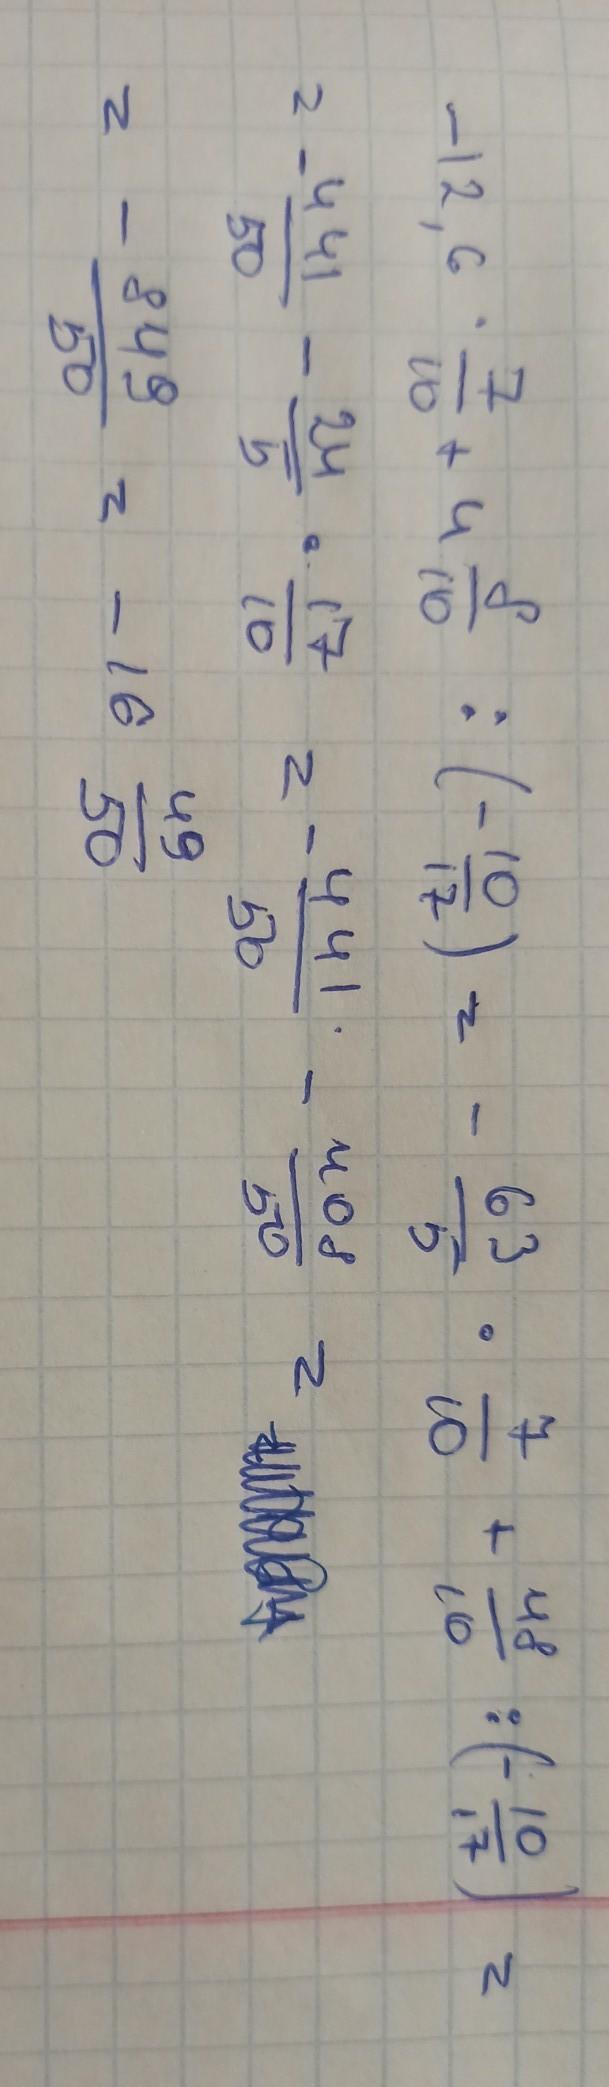 -12,6 · 7/10 + 4 8/10 : (-10/17) = -63/5 · 7/10 + 48/10 : (-10/17) =
= -441/50 - 24/5 · 17/10 = -441/50 - 408/50 =
= -849/50 = -16 49/50